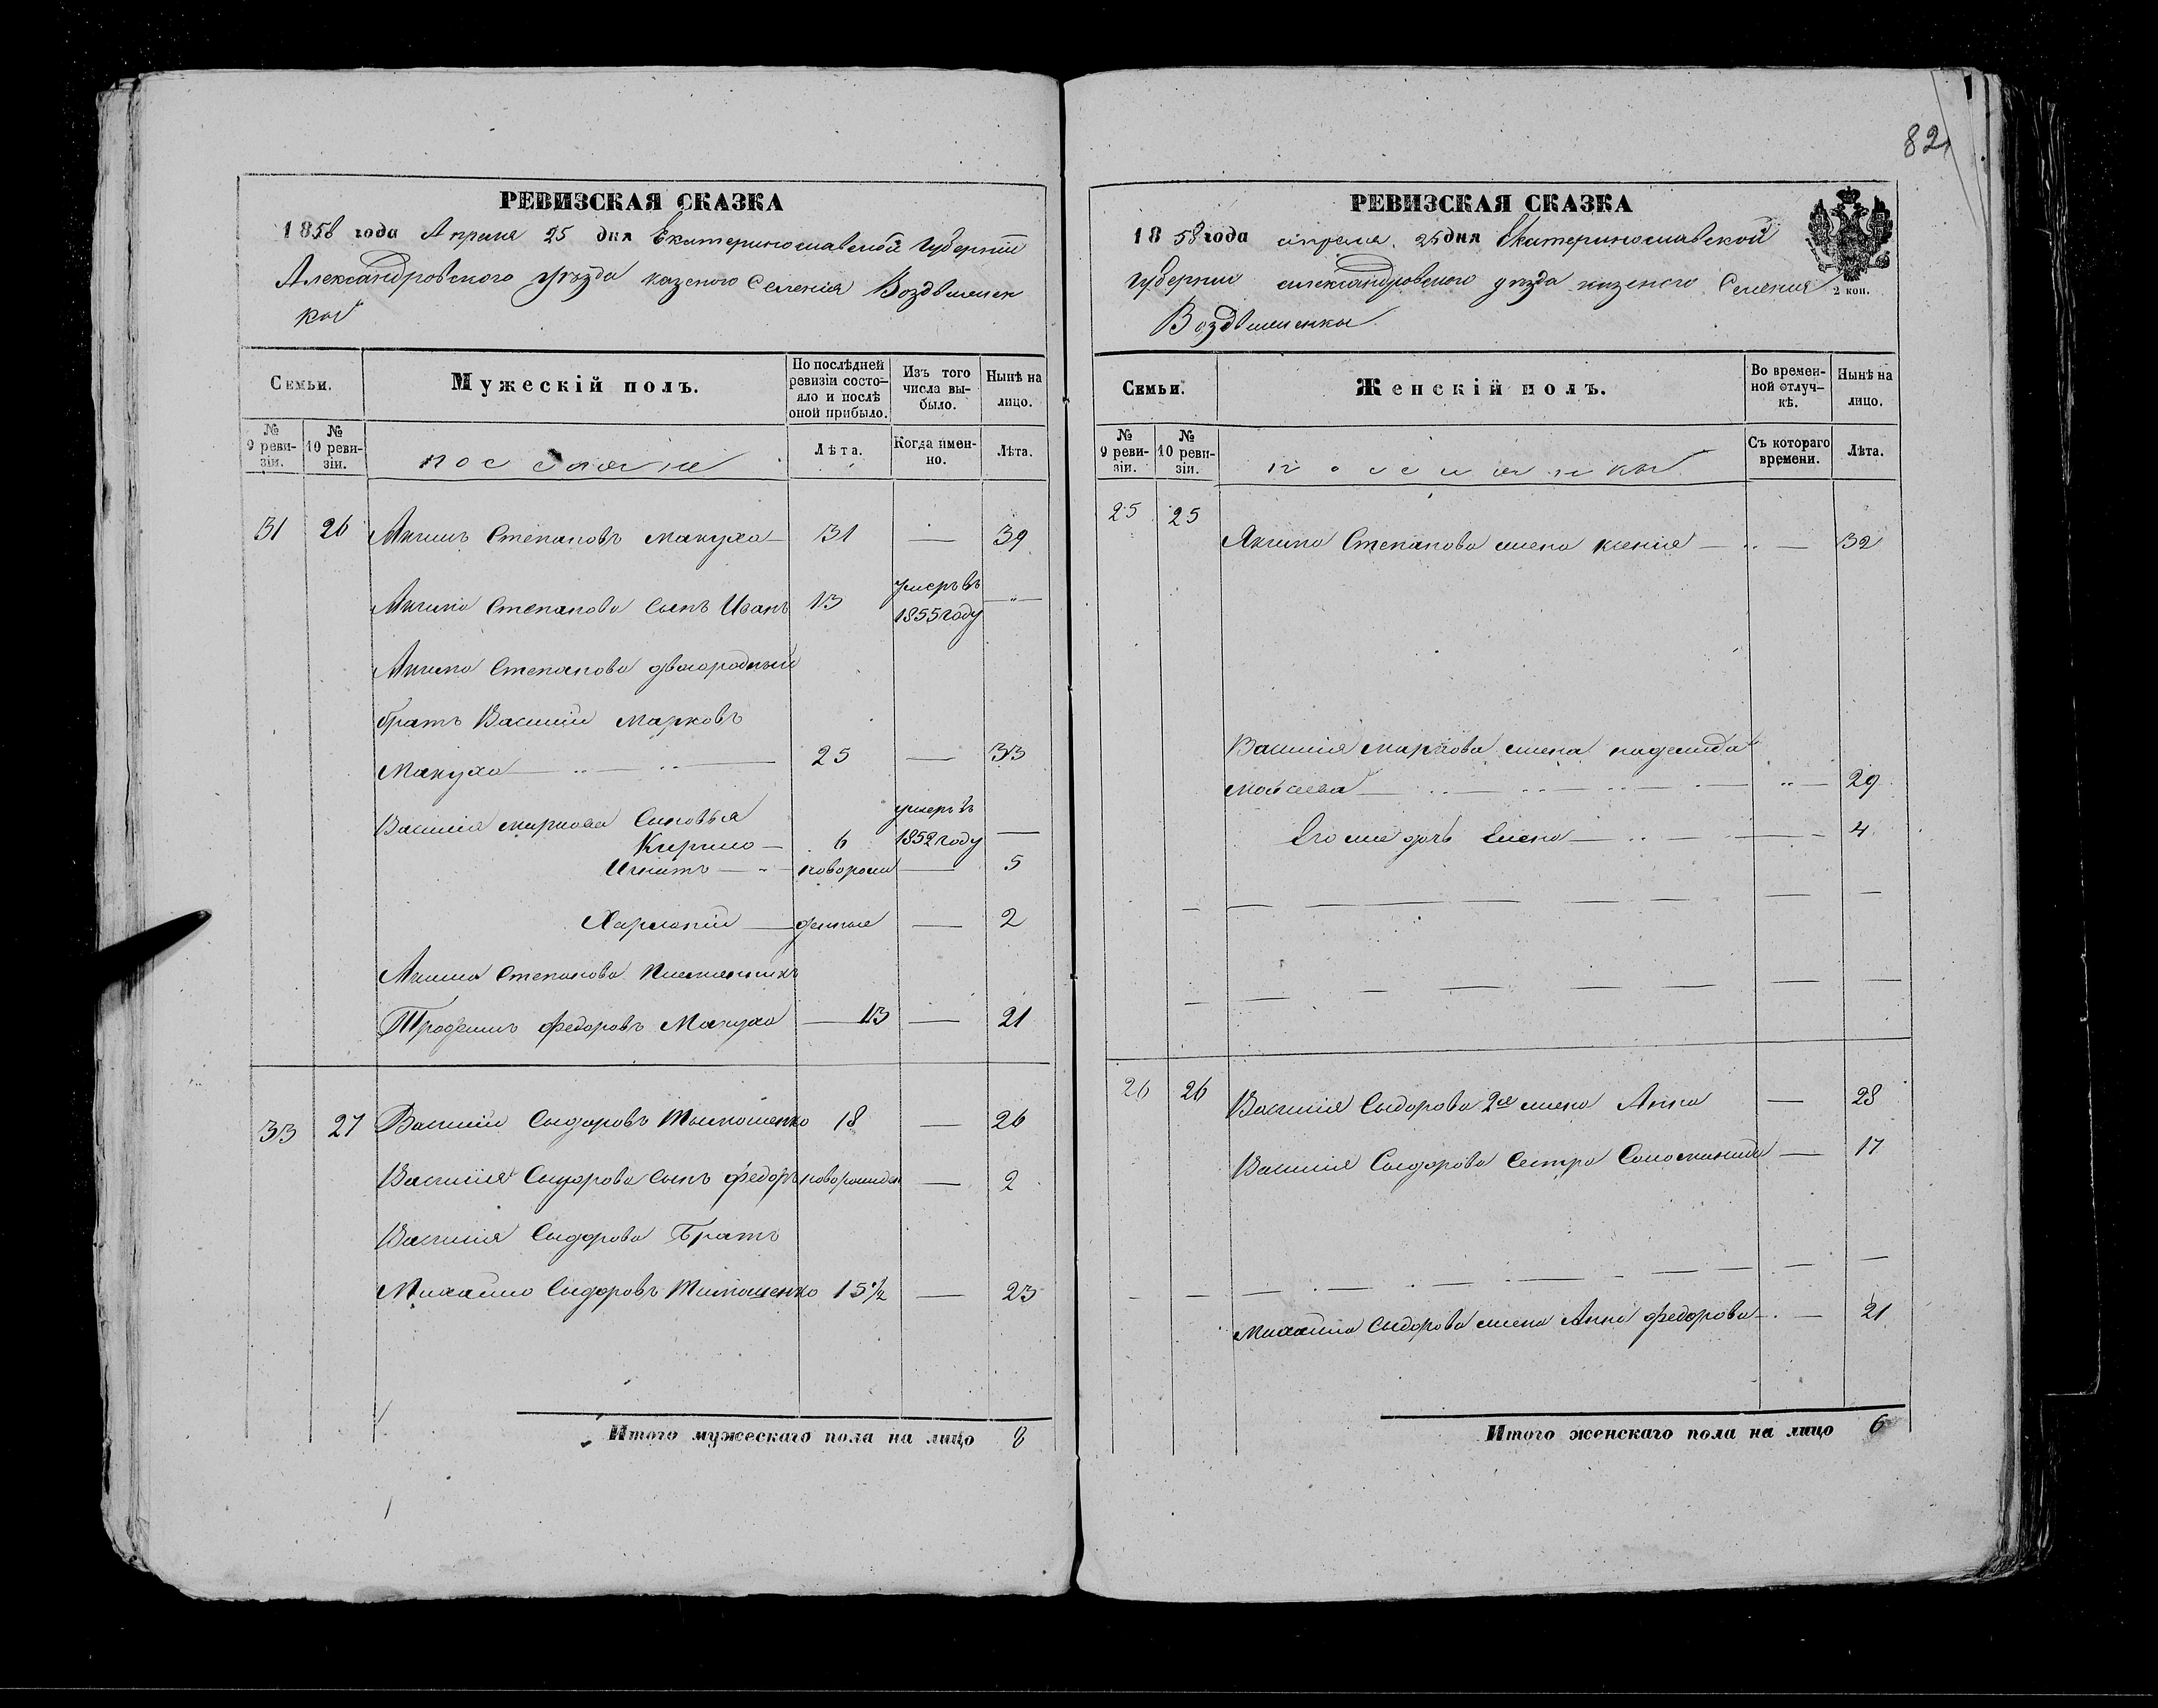 82
РЕВИЗСКАЯ СКАЗКА
1858 года Апреля 25 дня Екатеринославской Губернии
Александровского уѣзда казеного Селенія Воздвиженск
ки
Семьи.
Мужескій полъ.
По послѣдней ревизіи состо-
яло и послѣ оной прибыло.
Изъ того числа вы-
было.
Нынѣ на лицо.
№ 9 реви-
зіи.
№ 10 реви-
зіи.
поселяне
Лѣта.
Когда имен-
но.
Лѣта.
31 26 Якимъ Степановъ Макуха 31 — 39
Якима Степанова сынъ Иванъ 13 умеръ въ 1855 году — „ —
Якима Степанова двоюродный
братъ Василий Марковъ
Макуха 25 — 33
Василия Маркова сыновья
Кирило 6 умеръ въ 1852 году —
Игнатъ — новорож — 5
Харлапий — денные — 2
Якима Степанова племянникъ
Трофимъ Федоровъ Макуха 13 — 21
33 27 Василий Сыдоровъ Тымошенко 18 — 26
Василия Сыдорова сынъ Федоръ новорожден — 2
Василия Сыдорова Братъ
Михайло Сыдоровъ Тимошенко 15 1/2 — 23
Итого мужескаго пола на лицо 8
РЕВИЗСКАЯ СКАЗКА
1858 года апреля 25 дня Екатеринославской
Губернии александровского уѣзда казеного Селения
2 коп.
Воздвиженки
Семьи.
Женскій полъ.
Во времен-
ной отлуч-
кѣ.
Нынѣ на лицо.
№ 9 реви-
зіи.
№ 10 реви-
зіи.
поселянки
Съ котораго времени.
Лѣта.
25 25
Якима Степанова жена ксения — „ — 32
Василия Маркова жена надежда
Моисеева — „ — 29
Его же дочь Елена — 4
26 26 Василия Сыдорова 2я жена Анна — 28
Василия Сыдорова Сестра Соломанида — 17
Михайла Сыдорова жена Анна Федорова — 21
Итого женскаго пола на лицо 6